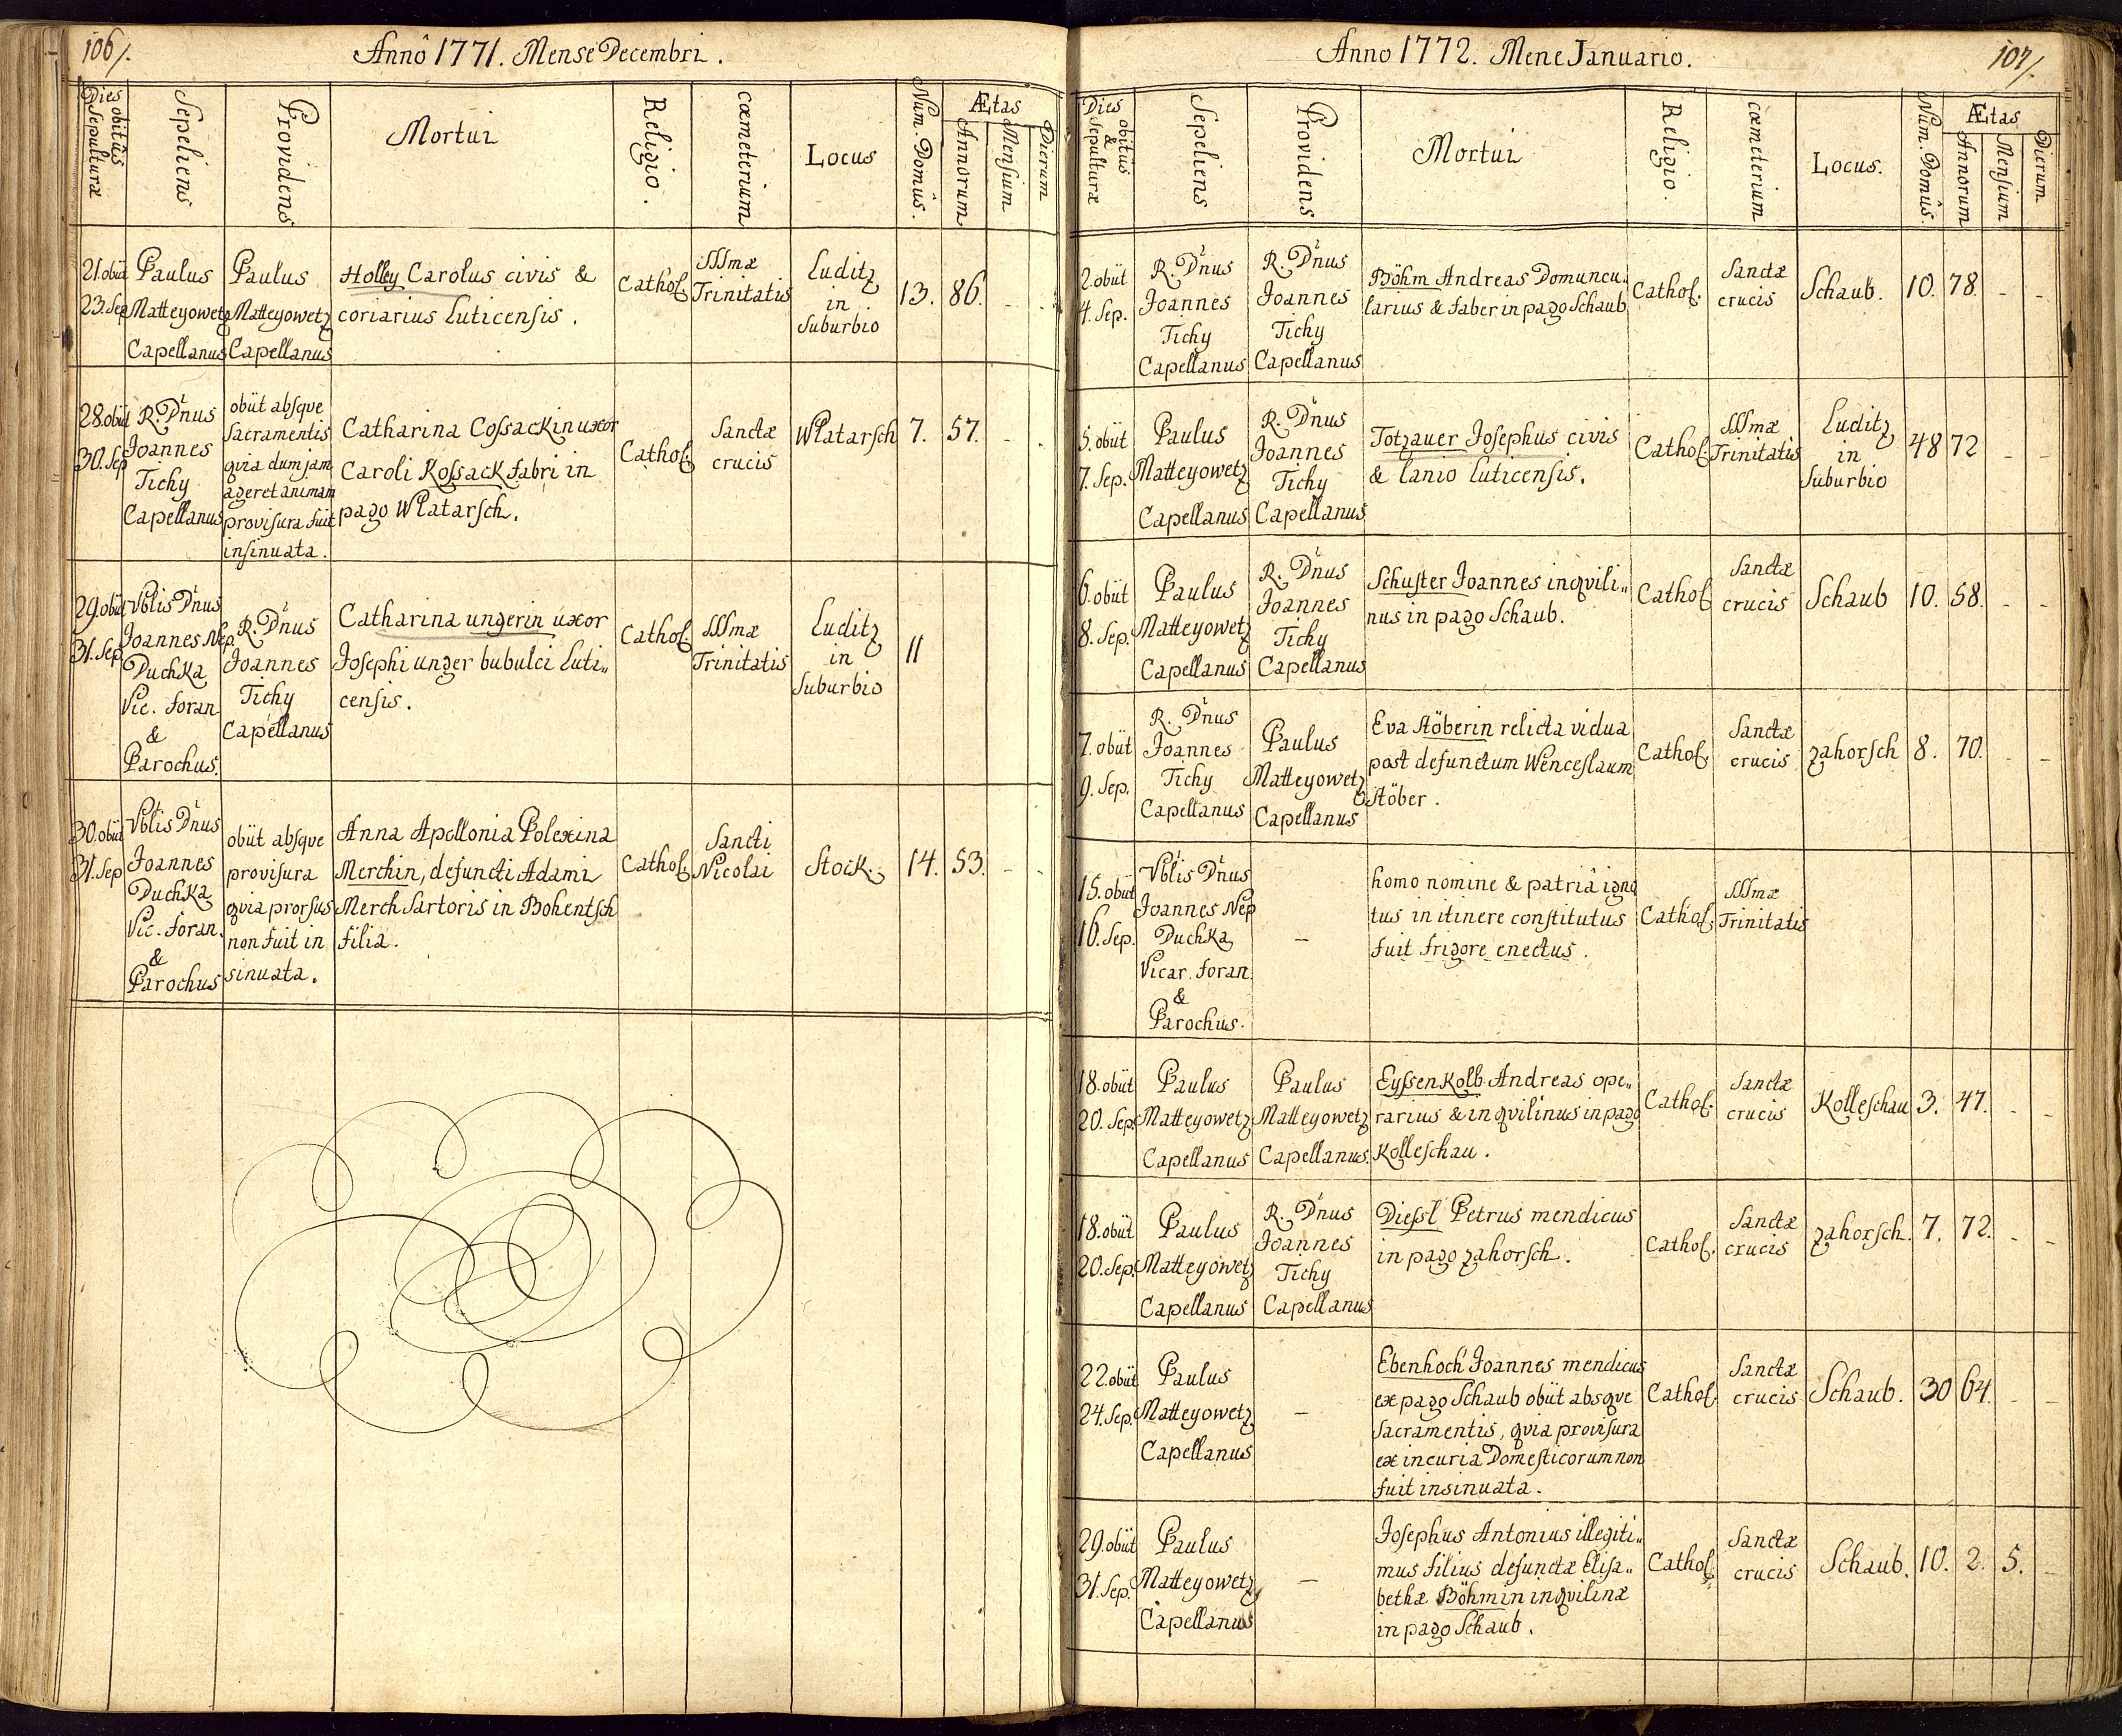 106/.
Annô 1771. Mense Decembri.
Dies obitûs
Sepulturæ
Sepeliens
Providens
Mortui
Religio.
cœmeterium
Locus
Num. Domûs.
Ætas
Annorum
Mensium
Dierum
21. obiit
23. Sep
Paulus
Matteyowetz
Capellanus
Paulus
Matteyowetz
Capellanus
Holley Carolus civis &
coriarius Luticensis.
Cathol.
SSSmæ
Trinitatis
Luditz
in
Suburbio
13.
86.
28. obiit
30. Sep
R. Dnus
Joannes
Tichy
Capellanus
obiit absque
Sacramentis
qvia dum jam
ageret animam
provisura fuit
insinuata.
Catharina Cossackin uxor
Caroli Kossack fabri in
pago Wlatarsch.
Cathol.
Sanctæ
crucis
Wlatarsch
7.
57.
29. obiit
31. Sep.
Vblis Dnus
Joannes Nep.
Duchka
Vic. foran
&
Parochus.
R. Dnus
Joannes
Tichy
Capellanus
Catharina ungerin uxor
Josephi unger bubulci Luti„
censis.
Cathol.
SSSmæ
Trinitatis
Luditz
in
Suburbio
11
30. obiit
31. Sep
Vblis Dnus
Joannes
Duchka
Vic. foran.
&
Parochus
obiit absque
provisura
qvia prorsus
non fuit in
sinuata.
Anna Apollonia Polexina
Merchin, defuncti Adami
Merch Sartoris in Bohentsch
filia.
Cathol.
Sancti
Nicolai
Stock.
14.
53.
Anno 1772. Mene Januario.
107/.
Dies obitus
&
Sepulturæ
Sepeliens
Providens
Mortui
Religio.
cœmeterium
Locus.
Num. Domûs.
Ætas
Annorum
Mensium
Dierum
2. obiit
4. Sep.
R. Dnus
Joannes
Tichy
Capellanus
R. Dnus
Joannes
Tichy
Capellanus
Böhm Andreas Domuncu„
larius & faber in pago Schaub
Cathol.
Sanctæ
crucis
Schaub.
10.
78.
5. obiit
7. Sep.
Paulus
Matteyowetz
Capellanus
R. Dnus
Joannes
Tichy
Capellanus
Totzauer Josephus civis
& lanio Luticensis.
Cathol.
SSSmæ
Trinitatis
Luditz
in
Suburbio
48
72
6. obiit
8. Sep.
Paulus
Matteyowetz
Capellanus
R. Dnus
Joannes
Tichy
Capellanus
Schuster Joannes inqvili„
nus in pago Schaub.
Cathol
Sanctæ
crucis
Schaub
10.
58.
7. obiit
9. Sep.
R. Dnus
Joannes
Tichy
Capellanus
Paulus
Matteyowetz
Capellanus
Eva Stöberin relicta vidua
post defunctum Wenceslaum
Stöber.
Cathol.
Sanctæ
crucis
Zahorsch
8.
70.
15. obiit
16. Sep.
Vblis Dnus
Joannes Nep
Duchka
Vicar. foran.
&
Parochus.
–
homo nomine & patriâ igno
tus in itinere constitutus
fuit frigore enectus.
Cathol.
SSSmæ
Trinitatis
18. obiit
20. Sep.
Paulus
Matteyowetz
Capellanus
Paulus
Matteyowetz
Capellanus.
Eyssenkolb Andreas ope„
rarius & inqvilinus in pago
Kolleschau.
Cathol.
Sanctæ
crucis
Kolleschau
3.
47.
18. obiit
20. Sep.
Paulus
Matteyowetz
Capellanus
R. Dnus
Joannes
Tichy
Capellanus
Diessl Petrus mendicus
in pago Zahorsch.
Cathol.
Sanctæ
crucis
Zahorsch.
7.
72.
22. obiit
24. Sep.
Paulus
Matteyowetz
Capellanus
–
Ebenhoch Joannes mendicus
ex pago Schaub obiit absqve
Sacramentis, qvia provisura
ex incuria Domesticorum non
fuit insinuata.
Cathol.
Sanctæ
crucis
Schaub.
30
64.
29. obiit
31. Sep.
Paulus
Matteyowetz
Capellanus
–
Josephus Antonius illegiti„
mus filius defunctæ Elisa„
bethæ Böhmin inqvilinæ
in pago Schaub.
Cathol.
Sanctæ
crucis
Schaub.
10.
2.
5.